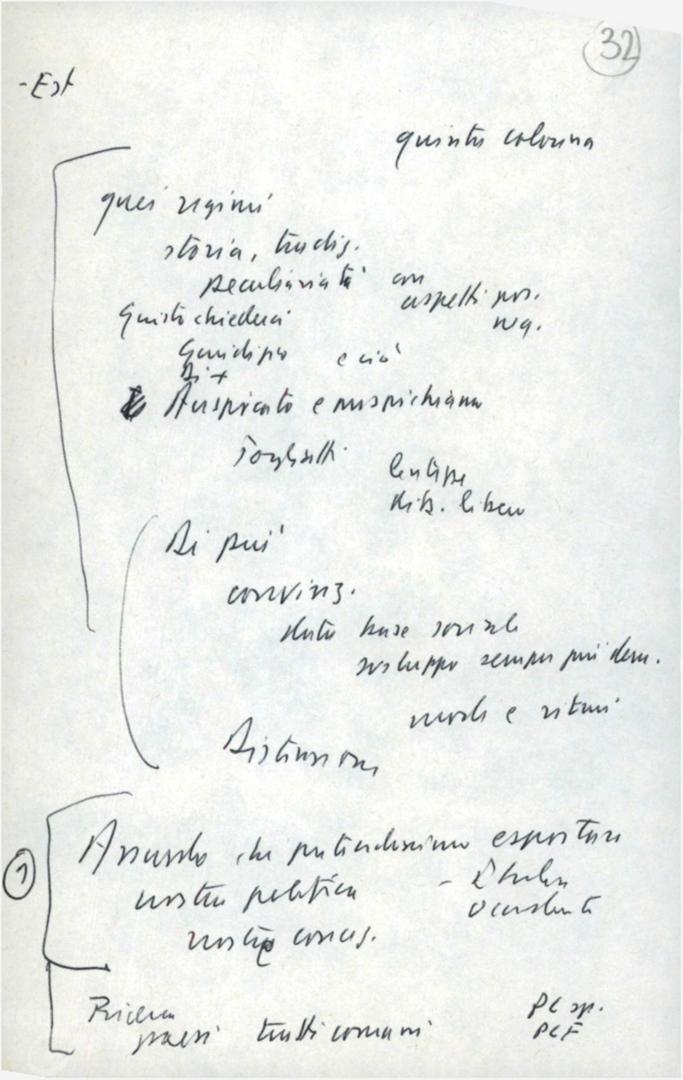 32
- Est
quinta colonna
quei regimi
storia, tradiz.
peculiarità con
aspetti pos.
neg.
Giusto chiederci
Giudizio e ciò
Di +
Auspicato e auspichiamo
Togliatti
Di più
convinz.
data base sociale
sviluppo sempre più dem.
modi e ritmi
Distensione
Assurdo che pretendessimo esportare
nostra politica - Italia
nostra concez. occidente
Ricerca
paesi tratti comuni
PC sp.
PCF
1